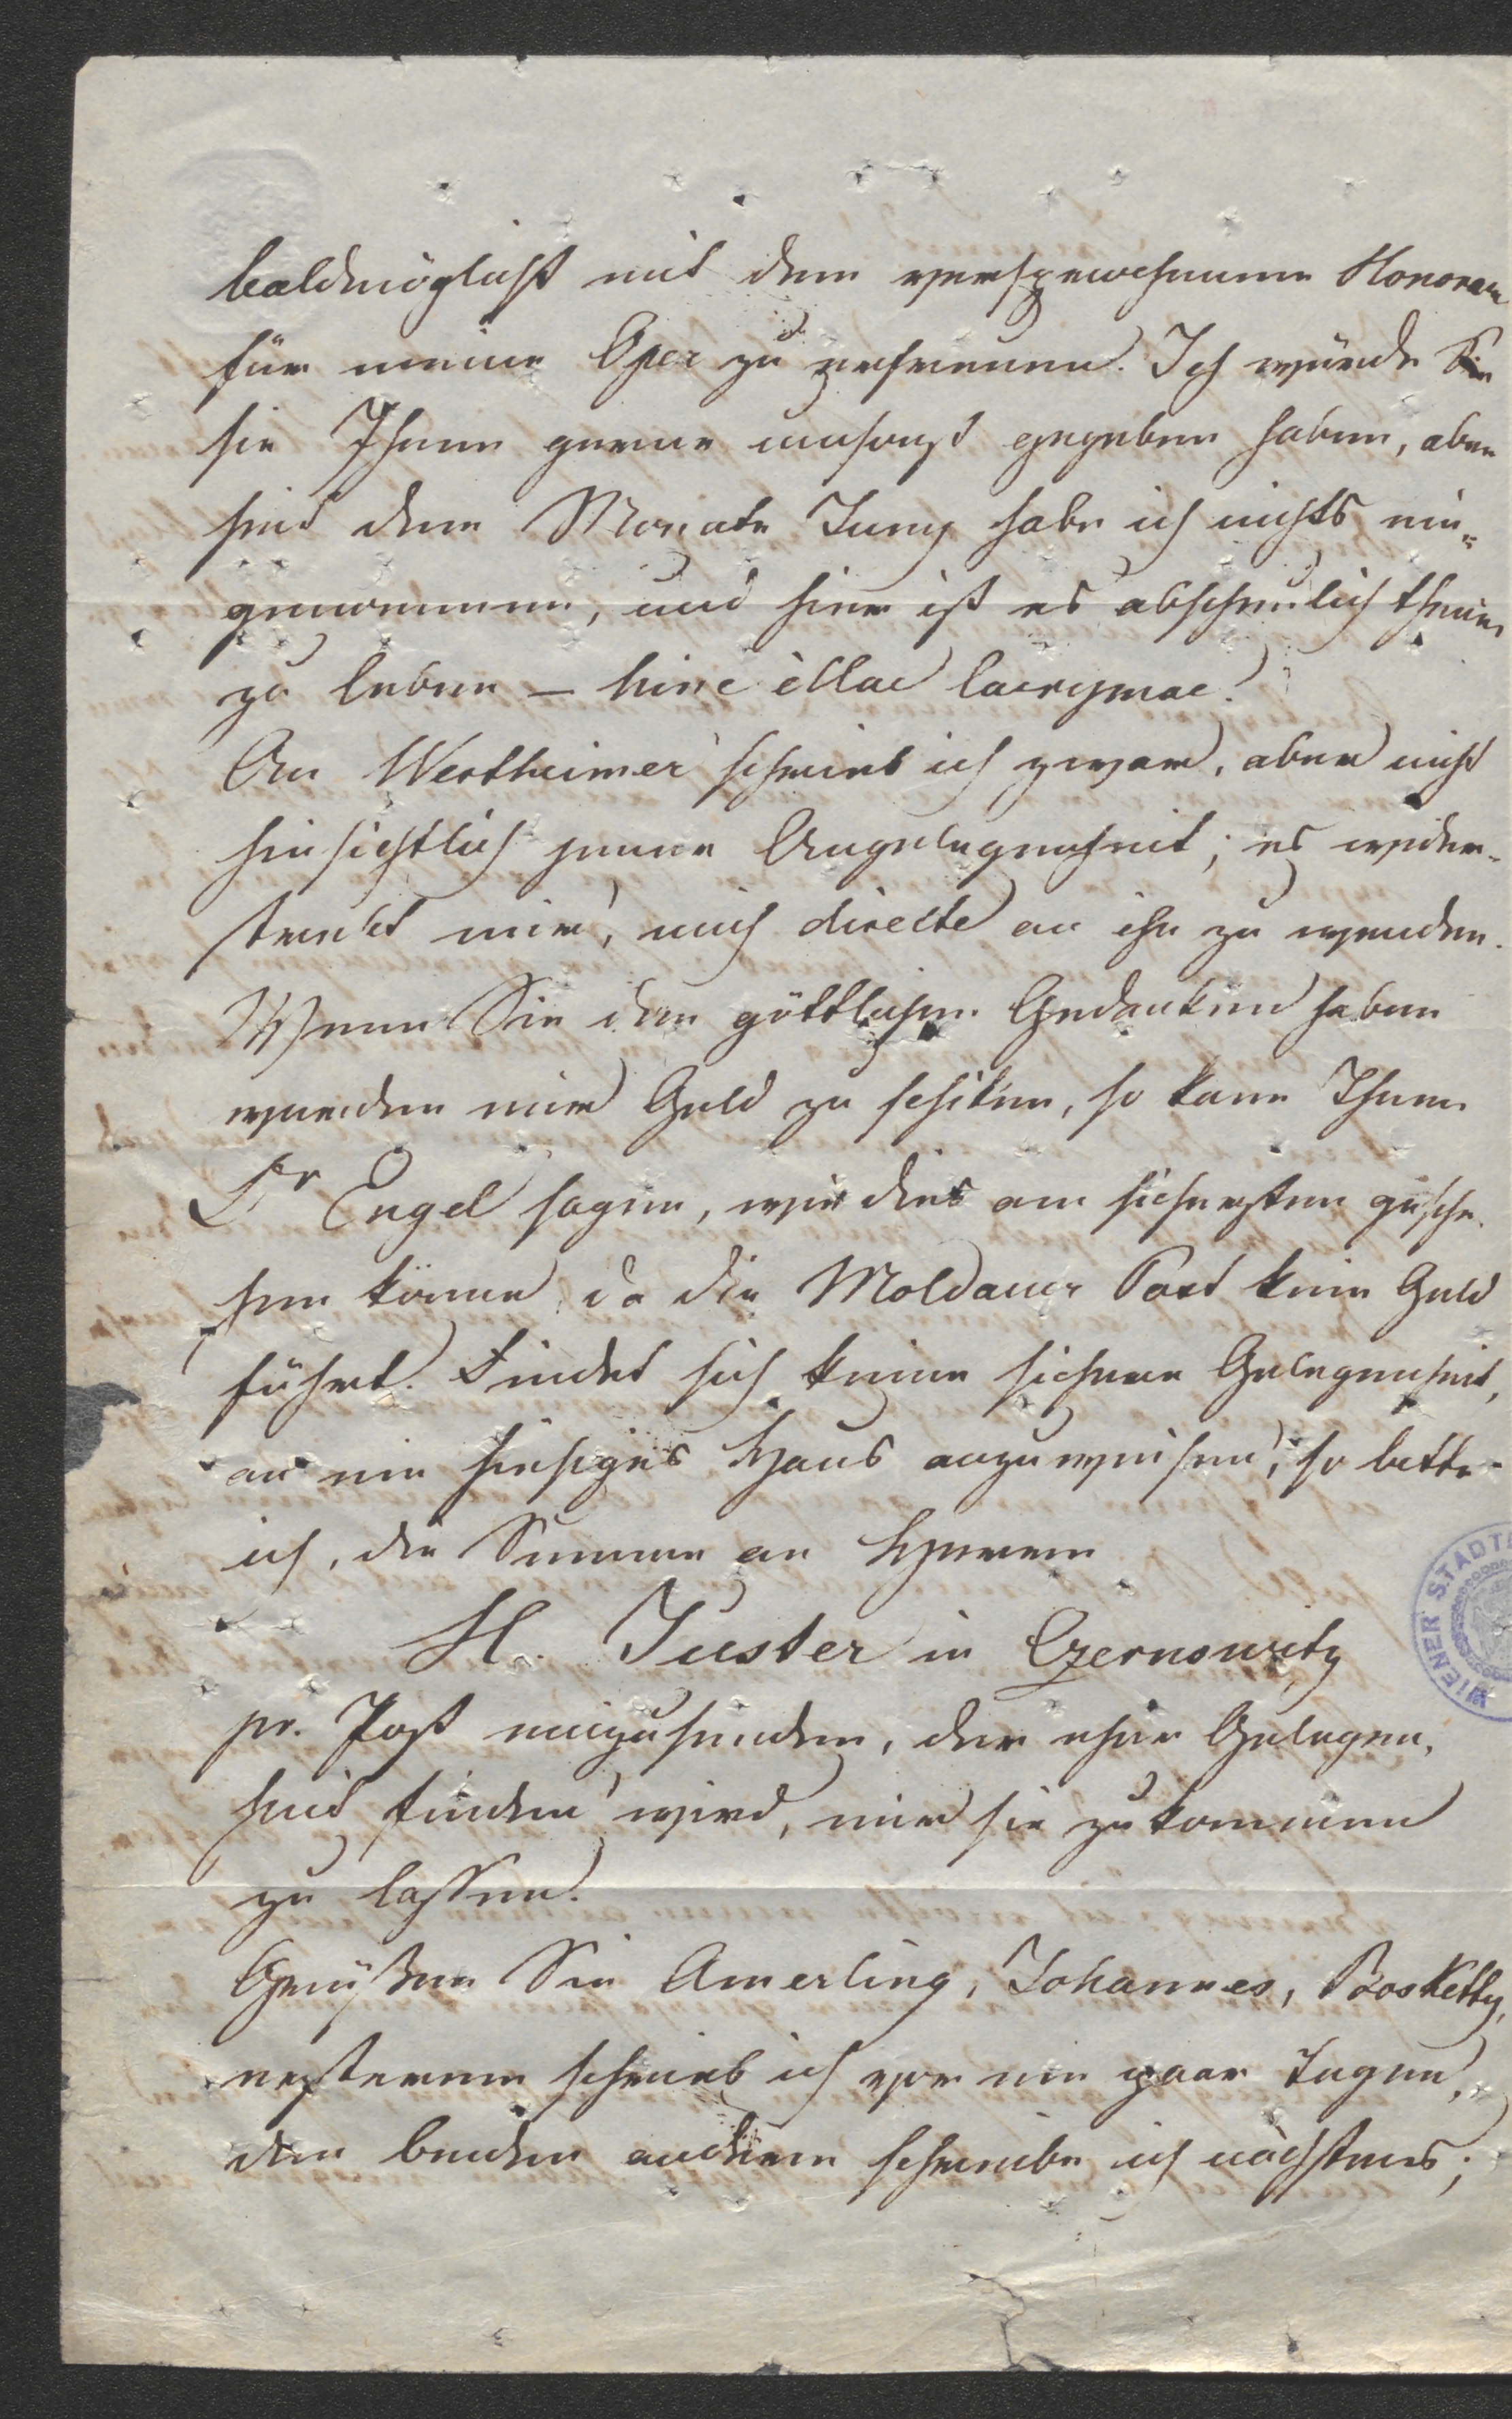 baldmöglichst mit dem versprochenen Honorare
für meine Oper zu erfreuen. Ich würde
sie Ihnen gerne umsonst gegeben haben, aber
seit dem Monate Juny habe ich nichts ein„
genommen, und hier ist es abscheulich theuer
zu leben – hinc illae lacrymae!
An Wertheimer schrieb ich zwar, aber nicht
hinsichtlich jener Angelegenheit; es wider„
strebt mir, mich directe an ihn zu wenden.
Wenn Sie den göttlichen Gedanken haben
werden mir Geld zu schiken, so kann Ihnen
Dr Engel sagen, wie dies am sichersten gesche„
hen könne, da die Moldauer Post kein Geld
führt. Findet sich keine sichere Gelegenheit,
an ein hiesiges Haus anzuweisen, so bitte
ich, die Summe an Herrn
H. Juster in Czernowitz
pr. Post einzusenden, der eher Gelegen„
heit finden wird, mir sie zukommen
zu lassen.
Grüßen Sie Amerling, Johannes,
ersterem schrieb ich vor ein paar Tagen,
den beiden andern schreibe ich nächstens;
WIENER STADT